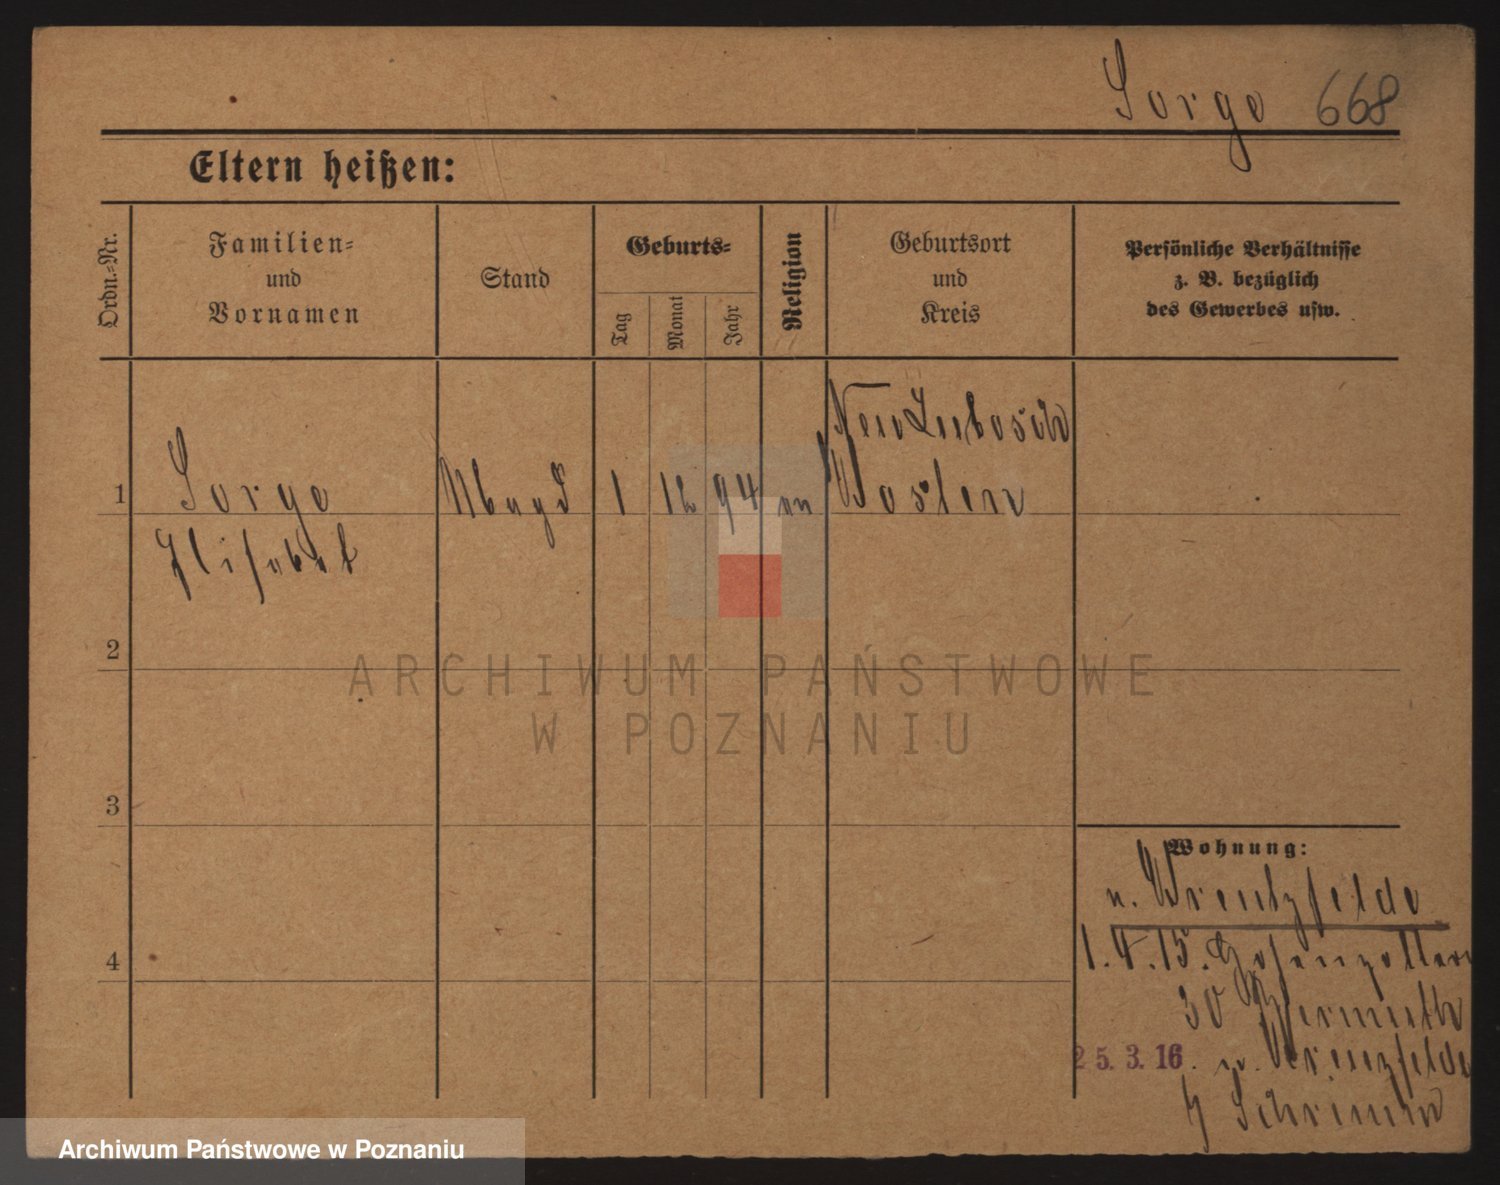 Sorge 668
Eltern heißen:
Ordn.-Nr.
Familien-
und
Vornamen
Stand
Geburts-
Tag
Monat
Jahr
Religion
Geburtsort
und
Kreis
Persönliche Verhältnisse
z. B. bezüglich
des Gewerbes usw.
1
Sorge
Elisabet
Magd
1
12
94
Neu Lubosch
Kosten
2
3
4
Wohnung:
n.
1.4.15. Hohenzollern
30 Wermuth
25.3.16. n.
Schrimm
ARCHIWUM PAŃSTWOWE
W POZNANIU
Archiwum Państwowe w Poznaniu